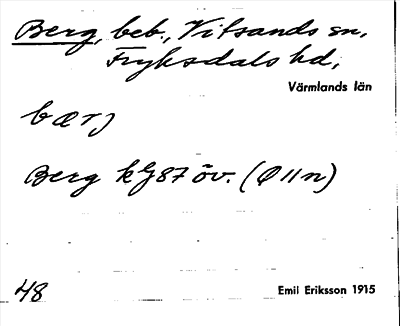 Berg, beb., Vitsands sn,
Fryksdals hd,
Värmlands län
bærj
Berg kG87 öv. (Ø 11 n)
48
Emil Eriksson 1915